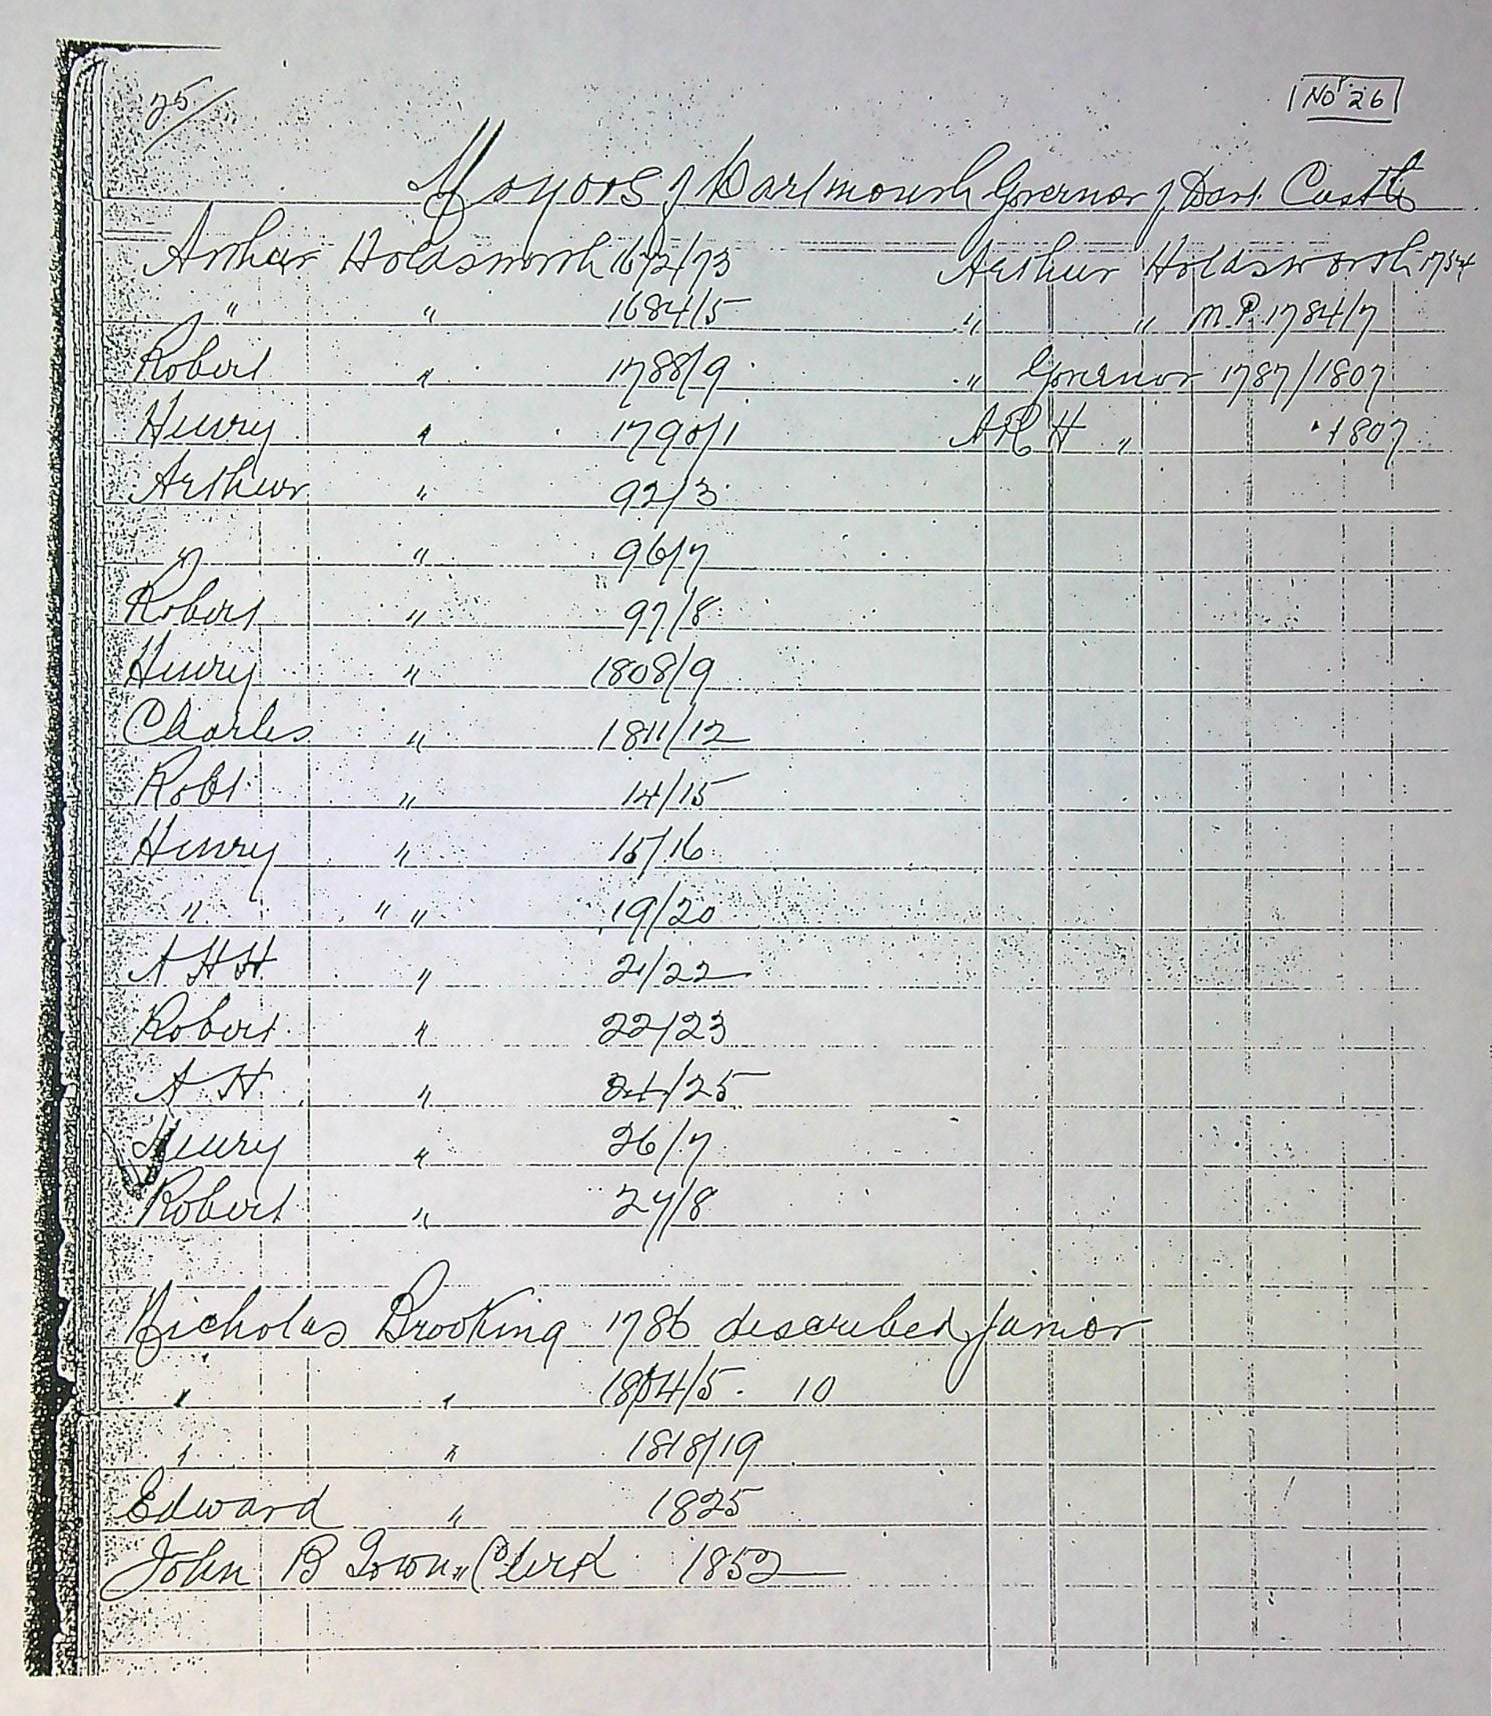 25/
No 26
Mayors of Dartmouth Governor of Dart. Castle
Arthur Holdsworth 1672/73 Arthur Holdsworth 1754
" " 1684/5 " " M.P. 1784/7
Robert " 1788/9 " Governor 1787/1807
Henry " 1790/1 A H H " 1807
Arthur " 92/3
" " 96/7
Robert " 97/8
Henry " 1808/9
Charles " 1811/12
Robt " 14/15
Henry " 15/16
" " " 19/20
A H H " 21/22
Robert " 22/23
A H " 24/25
Henry " 26/7
Robert " 27/8
Nicholas Brooking 1786 described Junior
" " 1804/5. 10
" " 1818/19
Edward " 1825
John B Town Clerk 1852